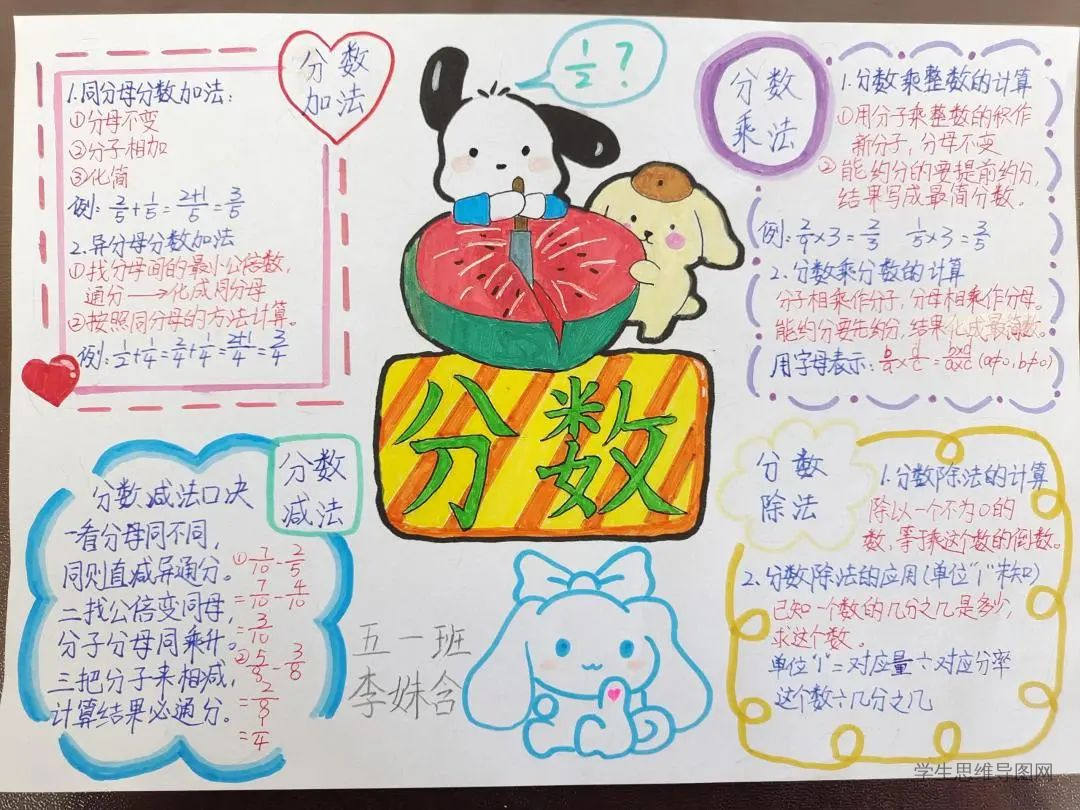 分数
加法
1.同分母分数加法:
①分母不变
②分子相加
③化简
例: 2/5+1/5=2+1/5=3/5
2.异分母分数加法
①找分母间的最小公倍数,
通分→化成同分母
②按照同分母的方法计算。
例: 1/2+1/4=2/4+1/4=2+1/4=3/4
1/2?
分数
乘法
1.分数乘整数的计算
①用分子乘整数的积作
新分子,分母不变
②能约分的要提前约分,
结果写成最简分数。
例: 2/9×3=2/3 1/5×3=3/5
2.分数乘分数的计算
分子相乘作分子,分母相乘作分母。
能约分要先约分,结果化成最简数。
用字母表示: b/a×d/c=b×d/a×c (a≠0,b≠0)
分数
分数
减法
分数减法口决
一看分母同不同,
同则直减异通分。
二找公倍变同母,
分子分母同乘升。
三把分子来相减,
计算结果必通分。
①7/10-2/5
=7/10-4/10
=3/10
②5/8-3/8
=2/8
=1/4
五一班
李姝含
分数
除法
1.分数除法的计算
除以一个不为0的
数,等于乘这个数的倒数。
2.分数除法的应用(单位"1"未知)
已知一个数的几分之几是多少,
求这个数。
单位"1"=对应量÷对应分率
这个数÷几分之几
学生思维导图网